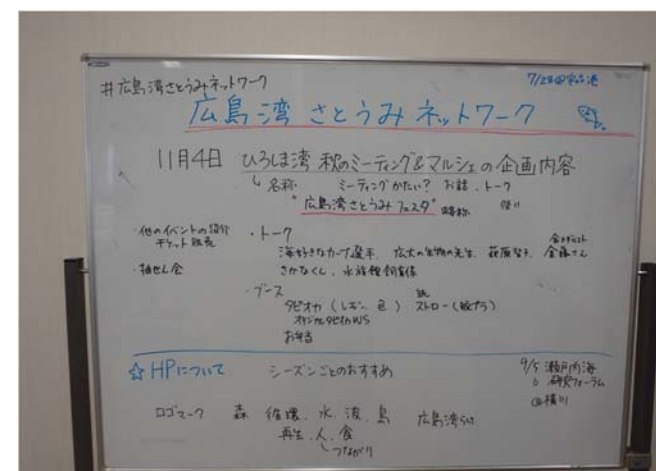 #広島湾さとうみネットワーク
7/28@宇品港
広島湾 さとうみ ネットワーク
11月4日 ひろしま湾 秋のミーティング&マルシェの企画内容
名称 ミーティングかたい? お話、トーク
"広島湾さとうみフェスタ" 略称
・他のイベントの紹介
チケット販売
・抽せん会
・トーク
海好きなカープ選手、広大の生物の先生、萩原智子、
さかなくん、水族館飼育係
・ブース
タピオカ(レモン、色) 紙ストロー(脱プラ)
オリジナルタピオカWS
お弁当
☆HPについて シーズンごとのおすすめ
9/5 瀬戸内海
研究フォーラム
@横川
ロゴマーク 森 循環、水、波、島 広島湾らしさ
再生、人、食
つながり